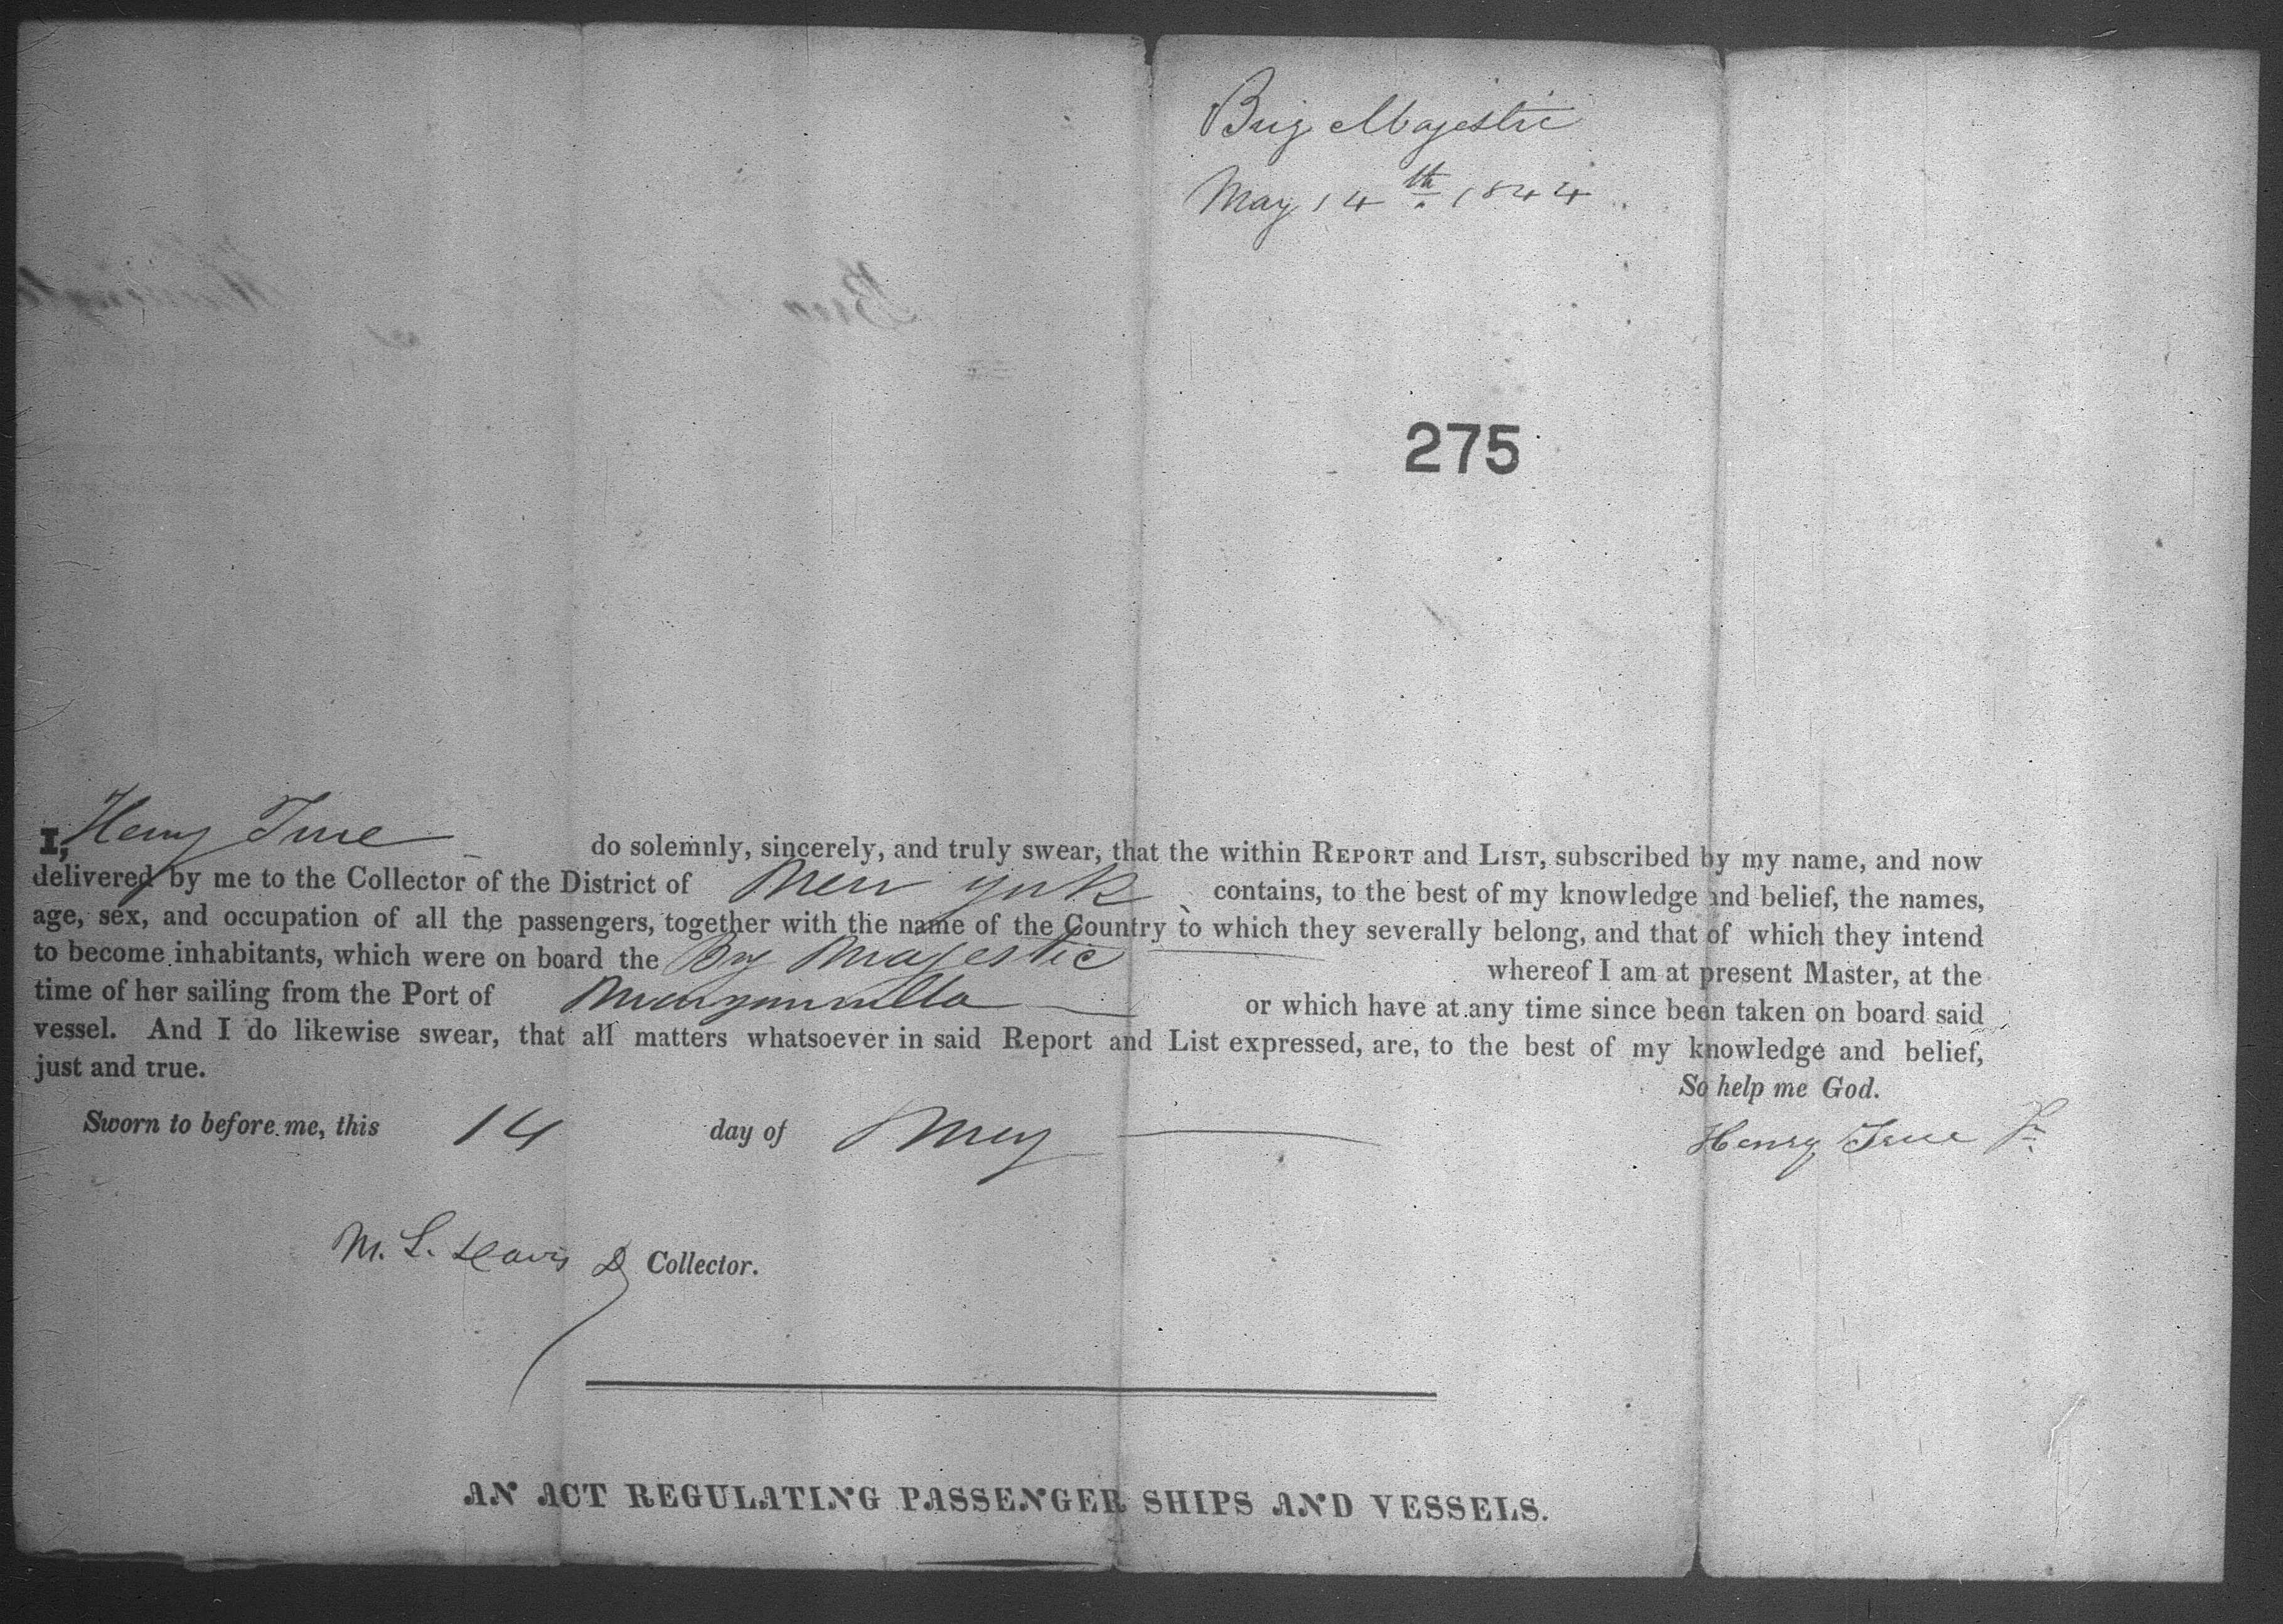 Brig Majestic
May 14th. 1844
275
I, Henry True do solemnly, sincerely, and truly swear, that the within REPORT and LIST, subscribed by my name, and now
delivered by me to the Collector of the District of New York contains, to the best of my knowledge and belief, the names,
age, sex, and occupation of all the passengers, together with the name of the Country to which they severally belong, and that of which they intend
to become inhabitants, which were on board the Brig Majestic whereof I am at present Master, at the
time of her sailing from the Port of or which have at any time since been taken on board said
vessel. And I do likewise swear, that all matters whatsoever in said Report and List expressed, are, to the best of my knowledge and belief,
just and true.
So help me God.
Sworn to before me, this 14 day of May
Henry True Jr.
M. L. Davis D Collector.
AN ACT REGULATING PASSENGER SHIPS AND VESSELS.